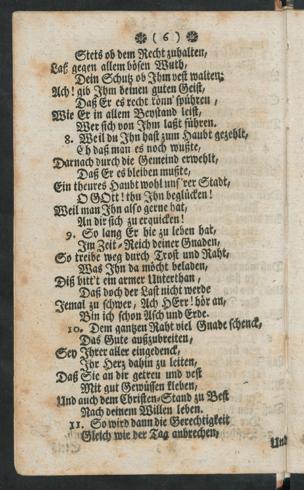 ( 6 )
Stets ob dem Recht zuhalten,
Laß gegen allem bösen Wuth,
Dein Schutz ob Ihm vest walten;
Ach! gib Ihm deinen guten Geist,
Daß Er es recht könn' spühren,
Wie Er in allem Beystand leist,
Wer sich von Ihm laßt führen.
8. Weil du Ihn hast zum Haubt gezehlt,
Eh daß man es noch wußte,
Darnach durch die Gemeind erwehlt,
Daß Er es bleiben mußte,
Ein theures Haubt wohl uns'rer Stadt,
O GOtt! thu Ihn beglücken!
Weil man Ihn also gerne hat,
An dir sich zu erquicken!
9. So lang Er hie zu leben hat,
Im Zeit-Reich deiner Gnaden,
So treibe weg durch Trost und Raht,
Was Ihn da möcht beladen,
Diß bitt't ein armer Unterthan,
Daß doch der Last nicht werde
Jemal zu schwer, Ach HErr! hör an,
Bin ich schon Asch und Erde.
10. Dem gantzen Raht viel Gnade schenck,
Das Gute außzubreiten,
Sey Ihrer aller eingedenck,
Ihr Hertz dahin zu leiten,
Daß Sie an dir getreu und vest
Mit gut Gewüssen kleben,
Und auch dem Christen-Stand zu Best
Nach deinem Willen leben.
11. So wird dann die Gerechtigkeit
Gleich wie der Tag anbrechen,
Und